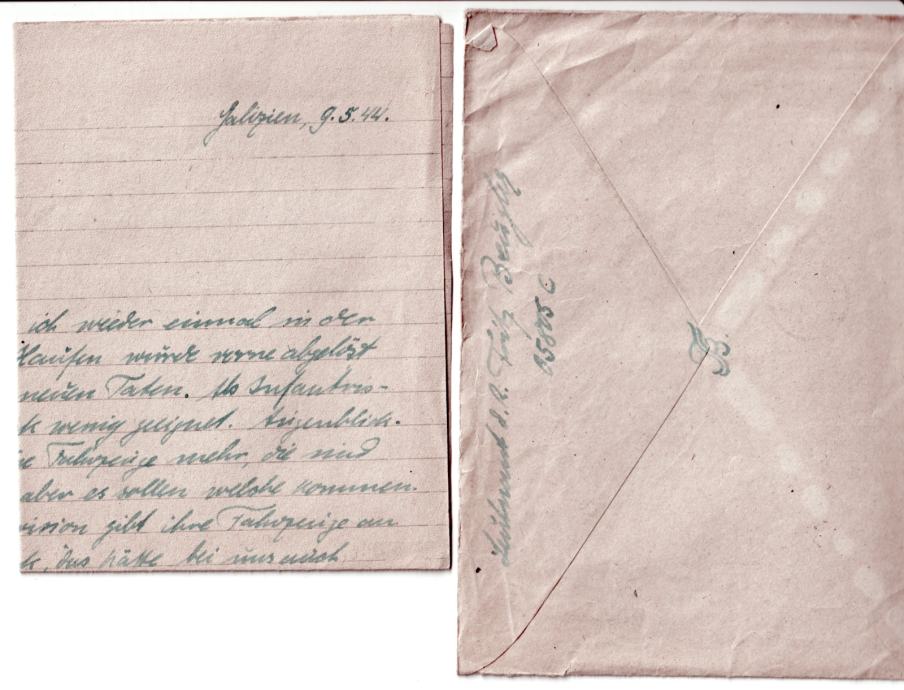 Galizien, 9.5.44.
ich wieder einmal in der
Haufen wurde vorne abgelöst
neuen Taten. Als Infantris-
k wenig geeignet. Augenblick-
ge Fahrzeuge mehr, die sind
aber es sollen welche kommen.
vision gibt ihre Fahrzeuge an
k, das hätte bei uns auch
Leutnant d. R. Fritz
05875 C
F. B.